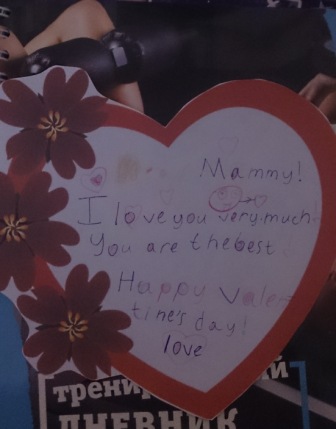 Mammy!
I love you very much!
You are the best
Happy Valen
tine's day!
love
ДНЕВНИК